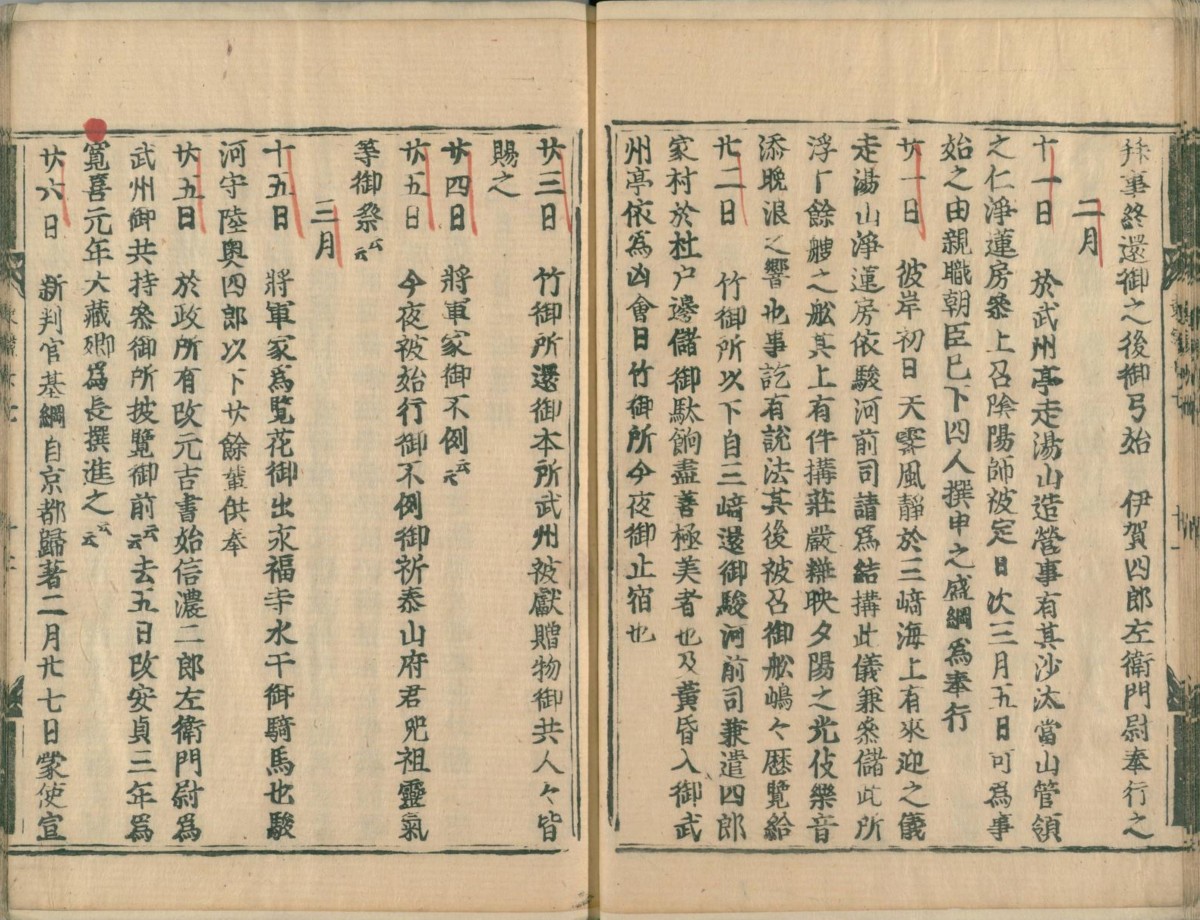 拜事終還御之後御弓始　伊賀四郎左衛門尉奉行之
二月
十一日　於武州亭走湯山造營事有其沙汰當山管領
之仁淨蓮房參上召陰陽師被定日次三月五日可爲事
始之由親職朝臣已下四人撰申之盛綱爲奉行
廿一日　彼岸初日天霽風靜於三﨑海上有來迎之儀
走湯山淨蓮房依駿河前司請爲結搆此儀兼參儲此所
浮十餘艘之舩其上有件搆莊嚴粧映夕陽之光伎樂音
添晚浪之響也事訖有說法其後被召御舩嶋々歷覽給
廿二日　竹御所以下自三﨑還御駿河前司兼遣四郎
家村於杜戸邊儲御駄餉盡善極美者也及黃昏入御武
州亭依爲凶會日竹御所今夜御止宿也
廿三日　竹御所還御本所武州被獻贈物御共人々皆
賜之
廿四日　將軍家御不例云云
廿五日　今夜被始行御不例御祈泰山府君咒祖靈氣
等御祭云云
三月
十五日　將軍家爲覽花御出永福寺水干御騎馬也駿
河守陸奧四郎以下廿餘輩供奉
廿五日　於政所有改元吉書始信濃二郎左衛門尉爲
武州御共持參御所披覽御前云云去五日改安貞三年爲
寬喜元年大藏卿爲長撰進之云云
廿六日　新判官基綱自京都歸著二月廿七日蒙使宣